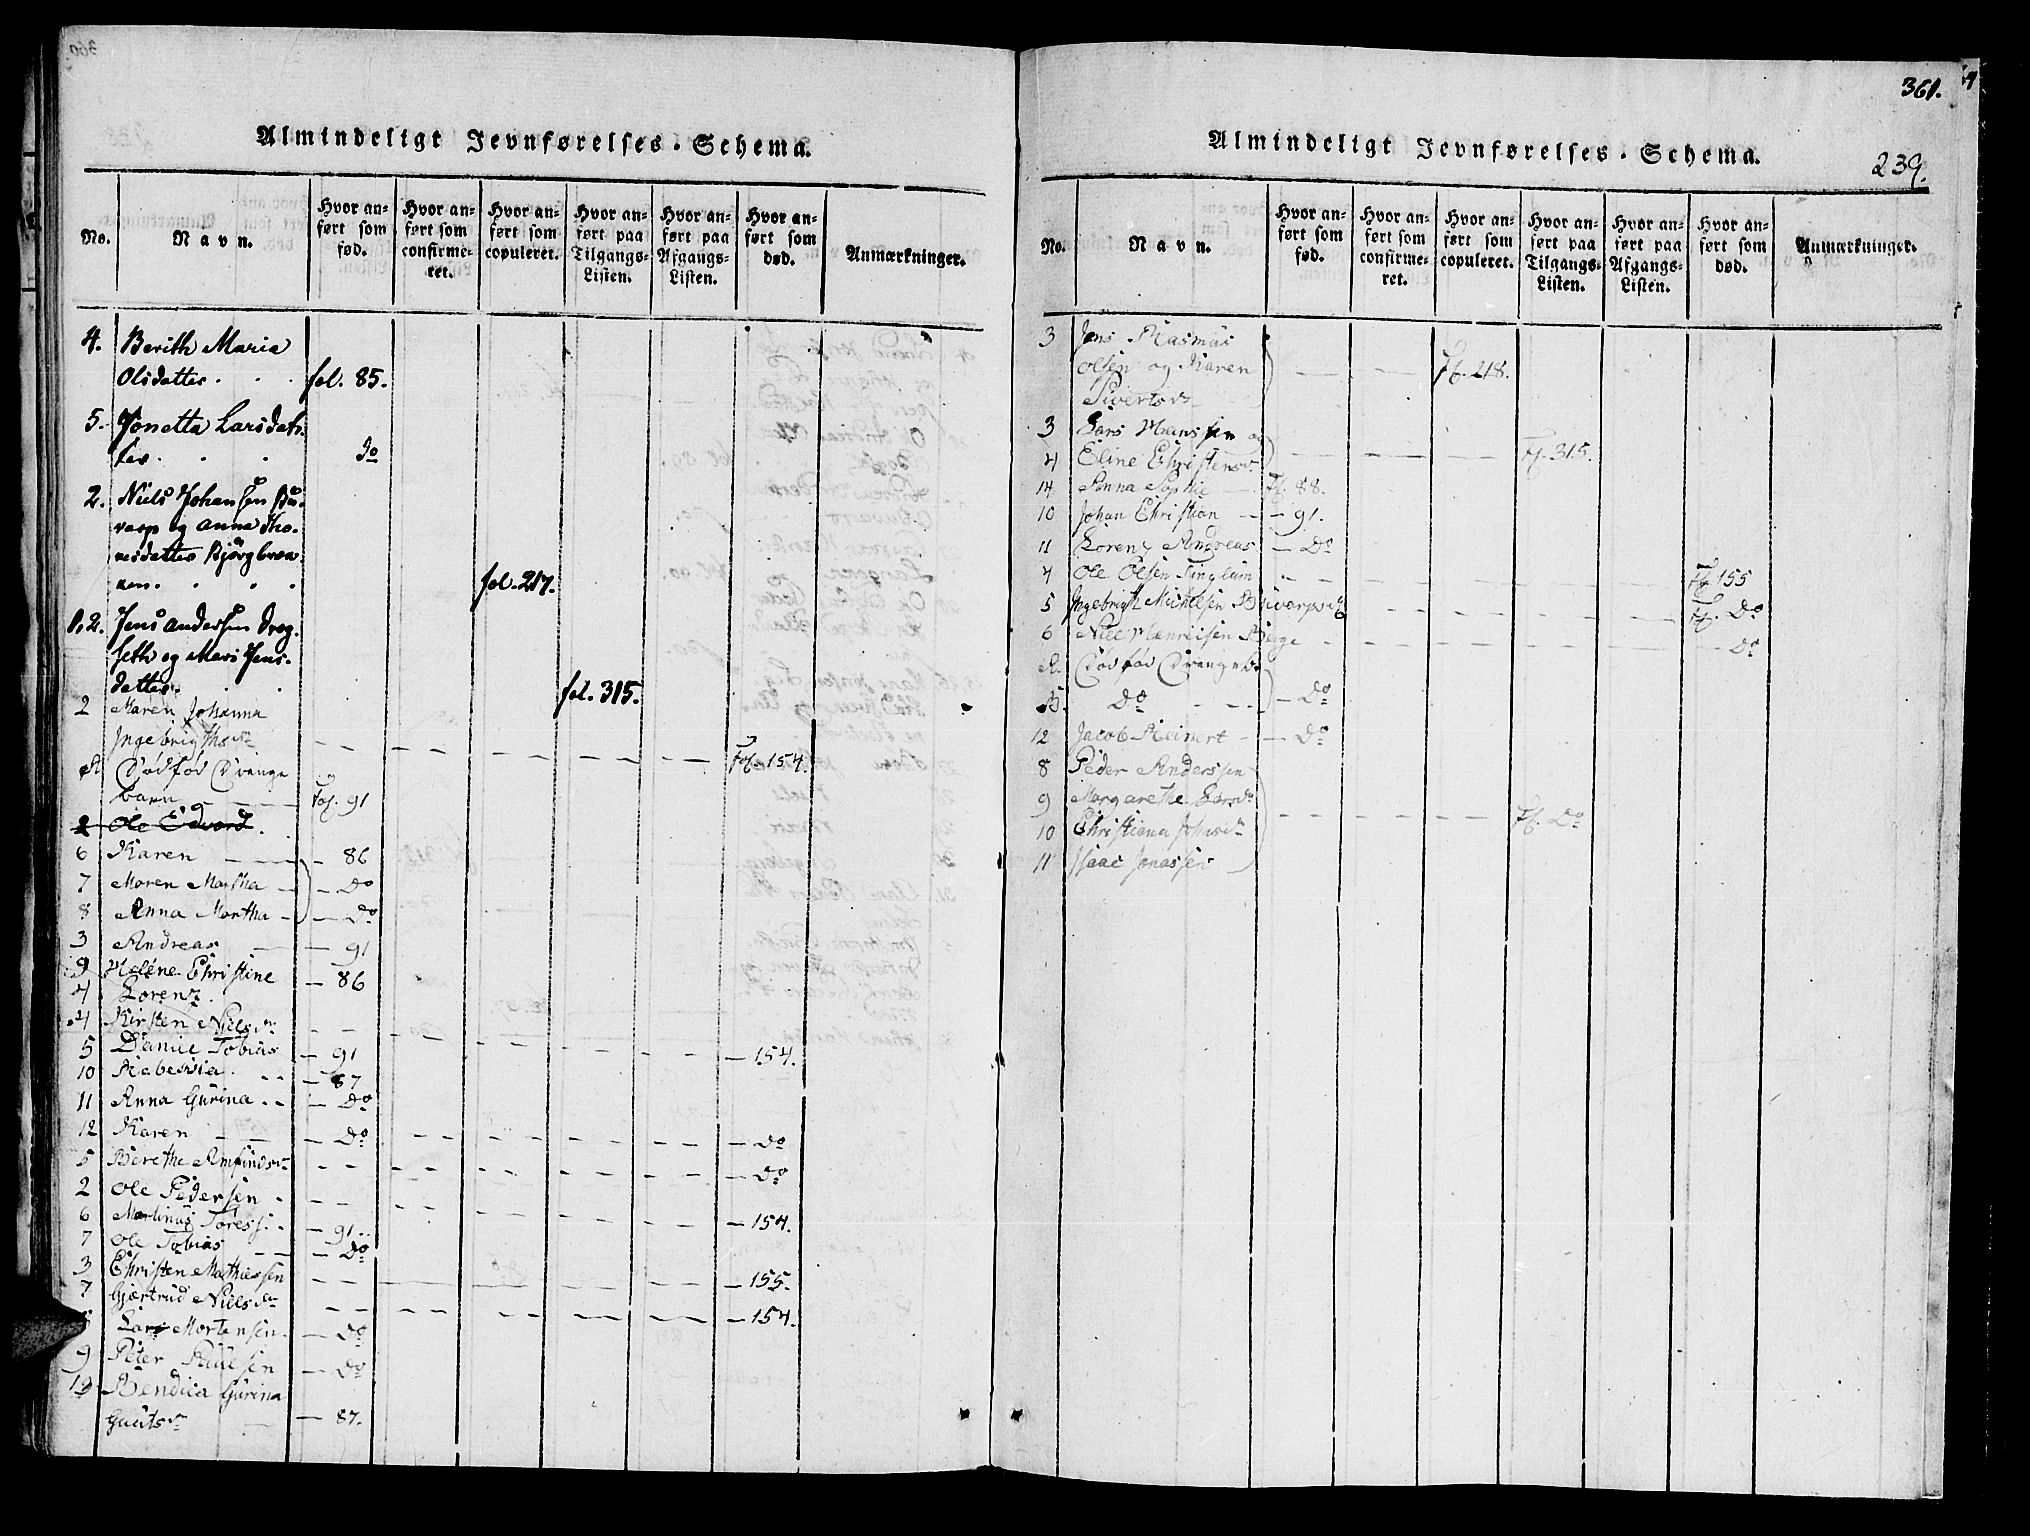 Almindeligt Jevnførelses-Schema.
No.
Navn.
Hvor anført som fød.
Hvor anført som confirmeret.
Hvor anført som copuleret.
Hvor anført paa Tilgangs-Listen.
Hvor anført paa Afgangs-Listen.
Hvor anført som død.
Anmærkninger.
4. Berith Maria
Olsdatter . . . fol. 85.
5. Jonetta Larsdat-
ter . . . do
2. Niels Johansen
og Anna Tho-
. . . fol. 217.
1,2. Jens Andersen Drog-
seth og Mari Jens-
datter. . . fol. 315.
2 Maren Johanna
Ingebrigthsdr — — — — — Fol. 154.
A Dødfød Drenge
barn — — Fol. 91
2 Ole Edvard.
6 Karen — — — 86
7 Maren Martha — — Do
8 Anna Martha — — Do
3 Andreas — — 91
9 Helene Christine — 86
4 Lorenz.
4 Kirsten Nielsdr — —
5 Daniel Tobias — 91 — 154.
10 Rebekka . — 87
11 Anna Gurina . . — Do
12 Karen — — — Do — — — — — Do
5 Berethe Amfindsdr — — — — — Do
2 Ole Pedersen . — —
6 Martinus Toress: . — 91 . . — 154.
7 Ole Tobias — — — Do
3 Christen Mathiessen — — — — — 155.
7 Gjertrud Nielsdr — — — — — 154.
Lars Mortensen . — Do
9 Peter Paulsen — Do
10 Bendica Gurina
Guutsdr — — 87.
361.
Almindeligt Jevnførelses-Schema.
239.
No.
Navn.
Hvor anført som fød.
Hvor anført som confirmeret.
Hvor anført som copuleret.
Hvor anført paa Tilgangs-Listen.
Hvor anført paa Afgangs-Listen.
Hvor anført som død.
Anmærkninger.
3 Jens Rasmus
Olsen og Karen — — Fol. 218.
Sivertsdr
3 Lars Hanssen og
4 Eline Christensdr — — — Fol. 315.
14 Anna Sophie — Fol. 88.
10 Johan Christian — — 91.
11 Lorenz Andreas — Do
4 Ole Olsen — — — — — Fol. 155
5 Ingebrigt — — — — Fol. Do
6 Niels Henriksen Berge — — — — — Do
A. Dødfød Drengeb.
B. Do — . . — Do
12 Jacob Reinert — — Do
8 Peder Anderssen
9 Margarethe Larsdr
10 Christiana Johnsdr — — — Fol. Do
11 Isaac Jonassen —